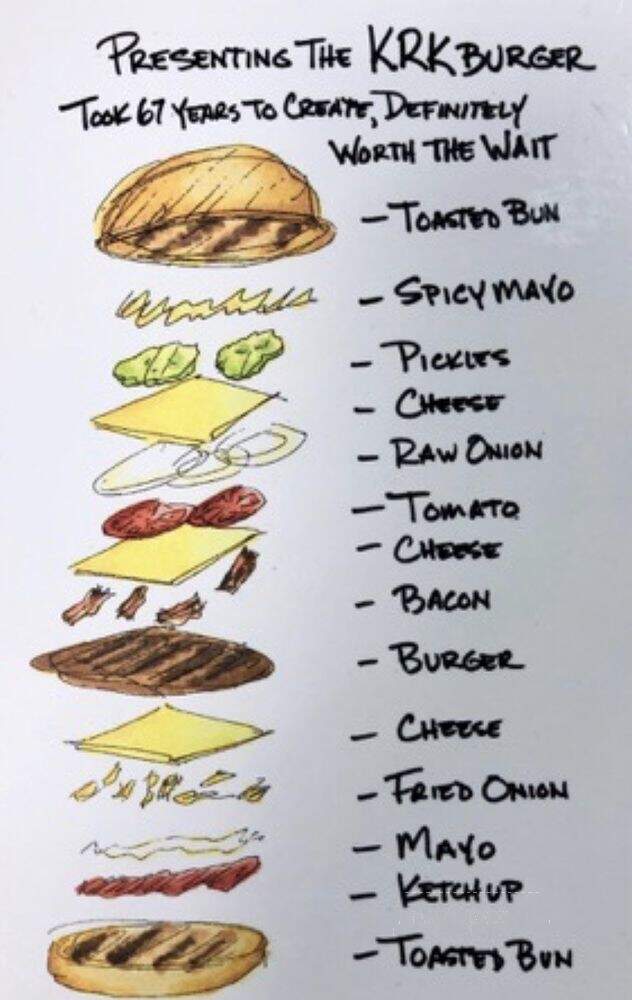 PRESENTING THE KRK BURGER
TOOK 67 YEARS TO CREATE, DEFINITELY
WORTH THE WAIT
- TOASTED BUN
- SPICY MAYO
- PICKLES
- CHEESE
- RAW ONION
- TOMATO
- CHEESE
- BACON
- BURGER
- CHEESE
- FRIED ONION
- MAYO
- KETCHUP
- TOASTED BUN